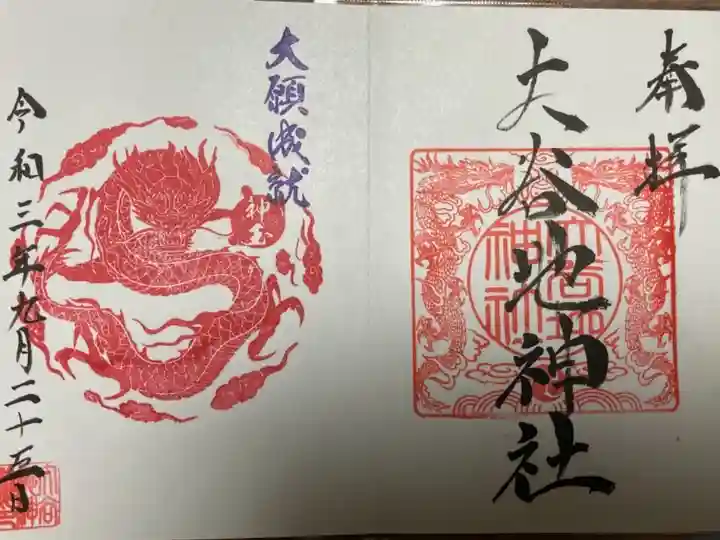 奉拝
大谷地神社
大願成就
神玉
令和三年九月二十五日